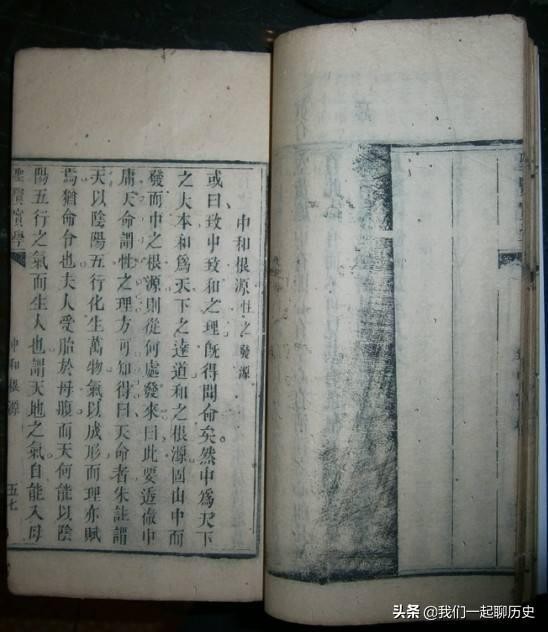 中和根源性之發源
或曰致中致和之理旣得聞命矣然中爲天下
之大本和爲天下之達道和之根源固由中而
發而中之根源則從何處發來曰此要透徹中
庸天命謂性之理方可知得曰天命者朱註謂
天以陰陽五行化生萬物氣以成形而理亦賦
焉猶命令也夫人受胎於母腹而天何能以陰
陽五行之氣而生人也謂天地之氣自能入母
聖賢實學
中和根源
五七
头条 @我们一起聊历史